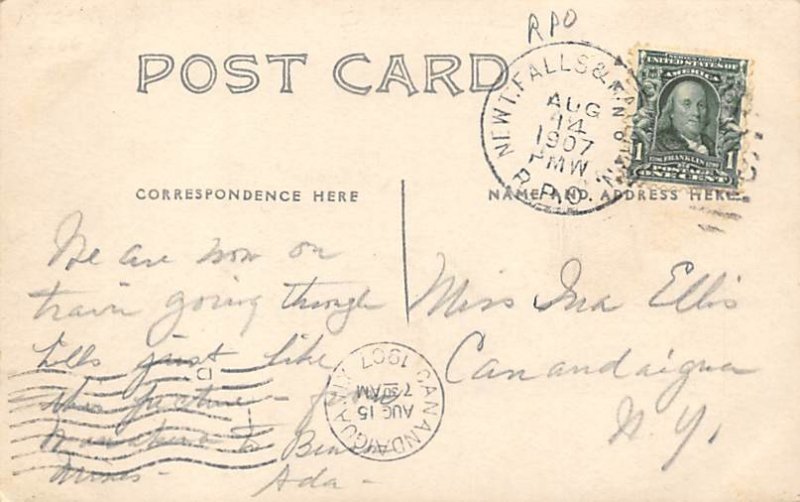 RPO
POST CARD
NEWT. FALLS &
AUG
14
1907
PMW
R.P.O.
UNITED STATES OF
AMERICA
1 FRANKLIN 1
POSTAGE
ONE CENT
CORRESPONDENCE HERE
NAME AND ADDRESS HERE
We are now on
train going through
hills just like
this picture - from
to
Ada -
Miss Ina Ellis
Canandaigua
N. Y.
CANANDAIGUA, N.Y.
AUG 15
7 30 AM
1907